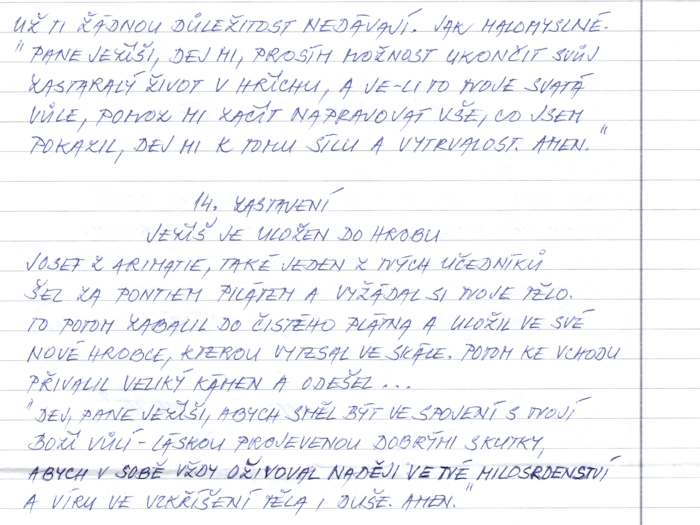 UŽ TI ŽÁDNOU DŮLEŽITOST NEDÁVAJÍ. JAK MALOMYSLNÉ.
"PANE JEŽÍŠI, DEJ MI, PROSÍM MOŽNOST UKONČIT SVŮJ
ZASTARALÝ ŽIVOT V HŘÍCHU, A JE-LI TO TVOJE SVATÁ
VŮLE, POMOZ MI ZAČÍT NAPRAVOVAT VŠE, CO JSEM
POKAZIL, DEJ MI K TOMU SÍLU A VYTRVALOST. AMEN."
14. ZASTAVENÍ
JEŽÍŠ JE ULOŽEN DO HROBU
JOSEF Z ARIMATIE, TAKÉ JEDEN Z TVÝCH UČEDNÍKŮ
ŠEL ZA PONTIEM PILÁTEM A VYŽÁDAL SI TVOJE TĚLO.
TO POTOM ZABALIL DO ČISTÉHO PLÁTNA A ULOŽIL VE SVÉ
NOVÉ HROBCE, KTEROU VYTESAL VE SKÁLE. POTOM KE VCHODU
PŘIVALIL VELIKÝ KÁMEN A ODEŠEL...
"DEJ, PANE JEŽÍŠI, ABYCH SMĚL BÝT VE SPOJENÍ S TVOJÍ
BOŽÍ VŮLÍ - LÁSKOU PROJEVENOU DOBRÝMI SKUTKY,
ABYCH V SOBĚ VŽDY OŽIVOVAL NADĚJI VE TVÉ MILOSRDENSTVÍ
A VÍRU VE VZKŘÍŠENÍ TĚLA I DUŠE. AMEN."